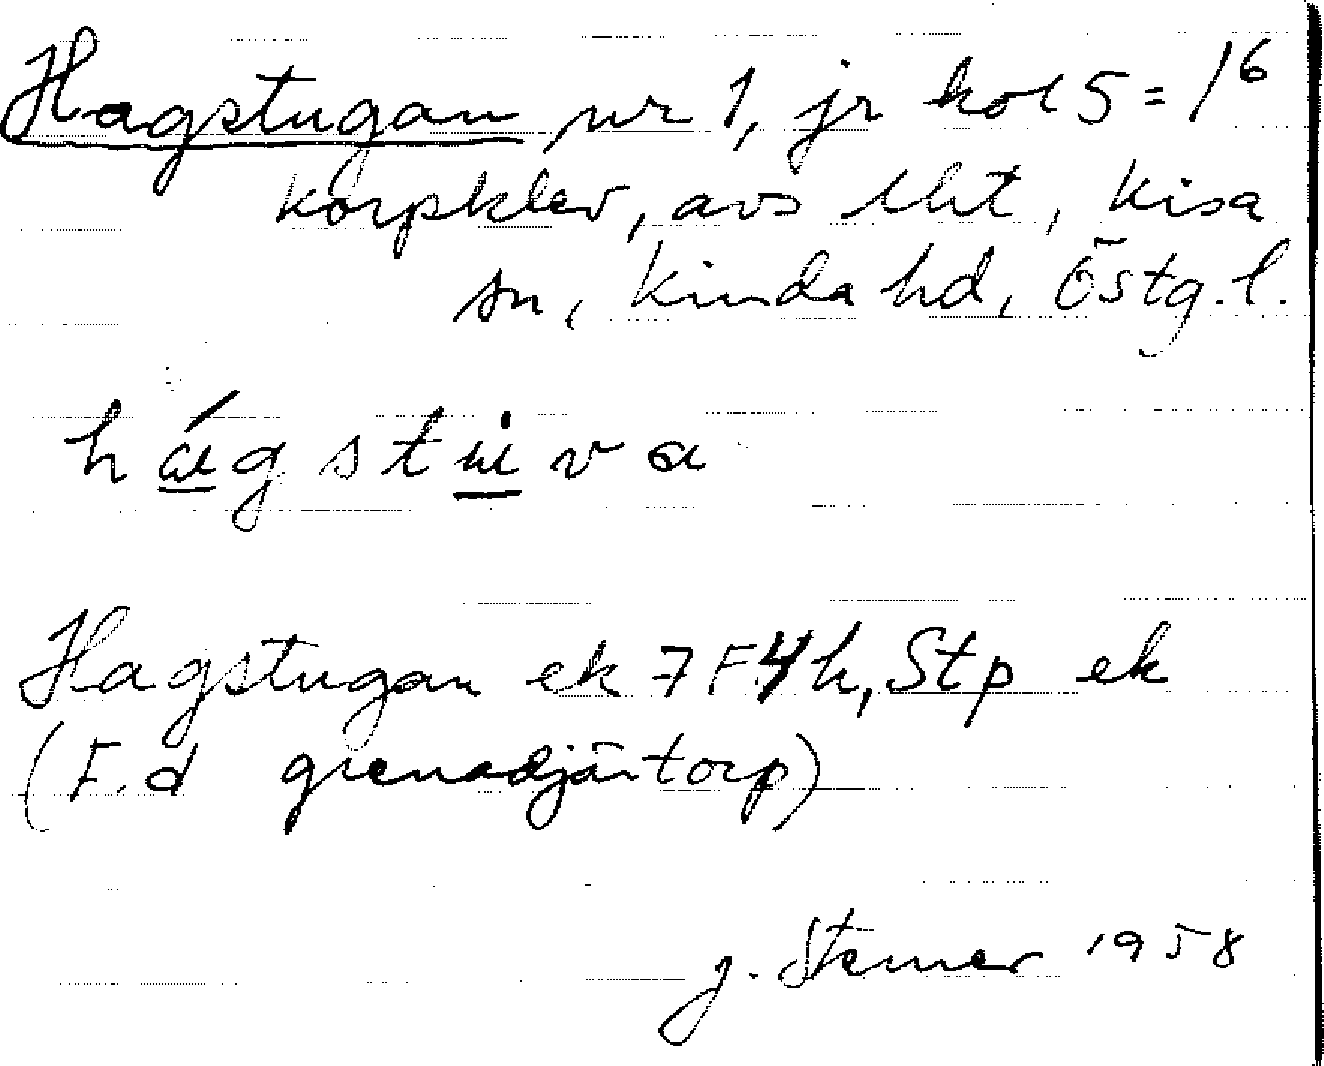 Hagstugan nr 1, jr kol 5 = 1⁶
Korpklev, avs lht, Kisa
sn, Kinda hd, Östg. l.
hágstuva
Hagstugan ek 7F4h, Stp ek
(F.d grenadjärtorp)
J. Stemer 1958